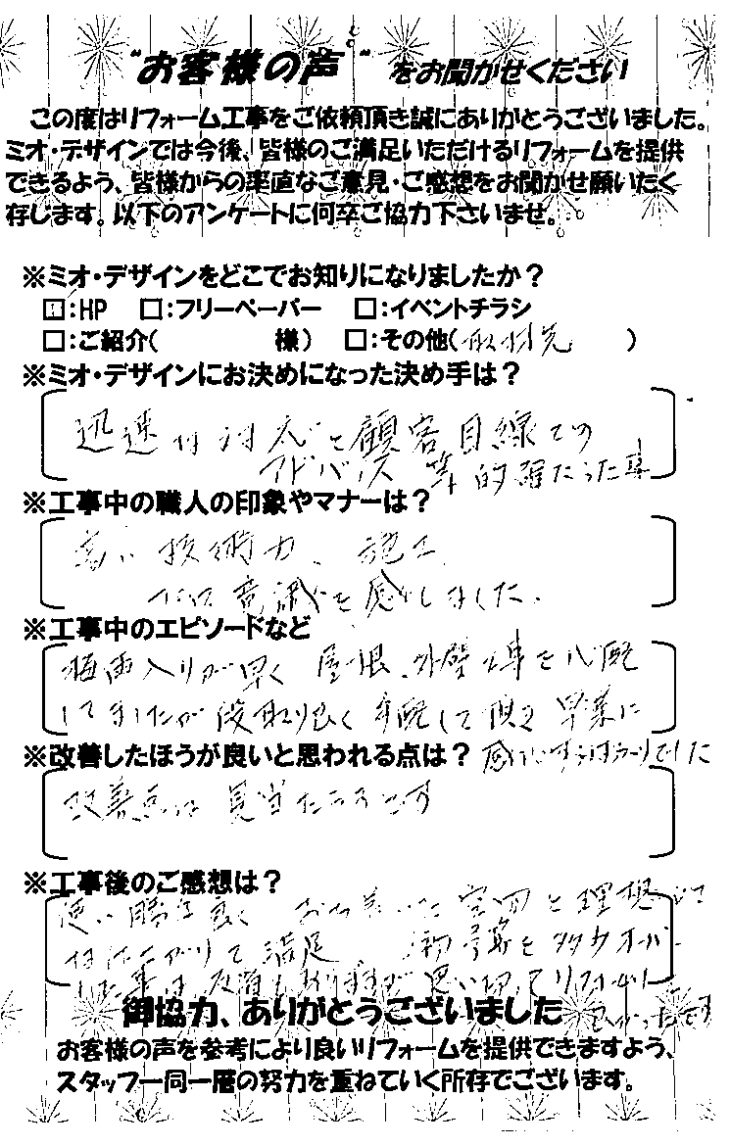 “お客様の声”をお聞かせください
この度はリフォーム工事をご依頼頂き誠にありがとうございました。
ミオ・デザインでは今後、皆様のご満足いただけるリフォームを提供
できるよう、皆様からの率直なご意見・ご感想をお聞かせ願いたく
存じます。以下のアンケートに何卒ご協力下さいませ。
※ミオ・デザインをどこでお知りになりましたか？
☑:HP □:フリーペーパー □:イベントチラシ
□:ご紹介( 様) □:その他(取材先 )
※ミオ・デザインにお決めになった決め手は？
迅速な対応と顧客目線での
アドバイス 等的確だった事
※工事中の職人の印象やマナーは？
高い技術力、施工
には意識を感じました。
※工事中のエピソードなど
梅雨入りが早く 屋根、外壁工事を心配
してましたが段取り良く手配して頂き 早業に
感じ でした
※改善したほうが良いと思われる点は？
改善点は 見当たらないです
※工事後のご感想は？
使い勝手良く おちついた空間と理想に
仕上がりて満足 予算を多少オーバー
した事は 思い切ってリフォームして
よかったです
御協力、ありがとうございました
お客様の声を参考により良いリフォームを提供できますよう、
スタッフ一同一層の努力を重ねていく所存でございます。